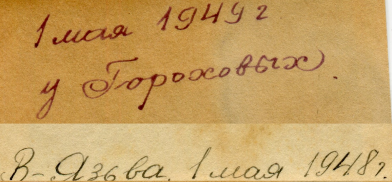 1 мая 1949 г
у Гороховых.
В-Язьва. 1 мая 1948 г.